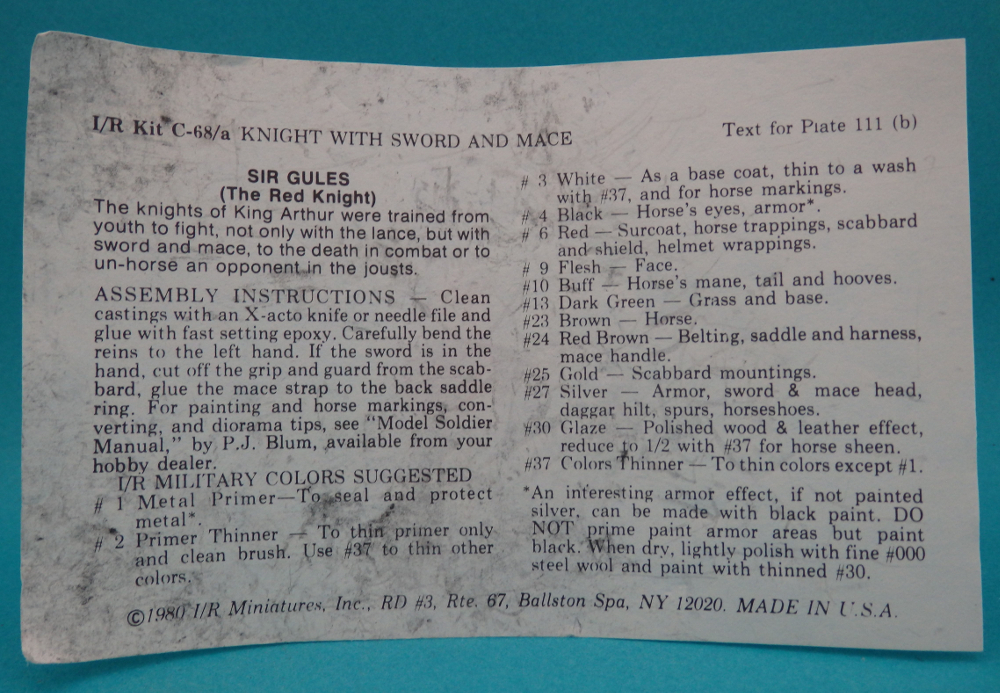 I/R Kit C-68/a KNIGHT WITH SWORD AND MACE
Text for Plate 111 (b)
SIR GULES
(The Red Knight)
The knights of King Arthur were trained from
youth to fight, not only with the lance, but with
sword and mace, to the death in combat or to
un-horse an opponent in the jousts.
ASSEMBLY INSTRUCTIONS — Clean
castings with an X-acto knife or needle file and
glue with fast setting epoxy. Carefully bend the
reins to the left hand. If the sword is in the
hand, cut off the grip and guard from the scab-
bard, glue the mace strap to the back saddle
ring. For painting and horse markings, con-
verting, and diorama tips, see "Model Soldier
Manual," by P.J. Blum, available from your
hobby dealer.
I/R MILITARY COLORS SUGGESTED
# 1 Metal Primer—To seal and protect
metal*.
# 2 Primer Thinner — To thin primer only
and clean brush. Use #37 to thin other
colors.
# 3 White — As a base coat, thin to a wash
with #37, and for horse markings.
# 4 Black — Horse's eyes, armor*.
# 6 Red — Surcoat, horse trappings, scabbard
and shield, helmet wrappings.
# 9 Flesh — Face.
#10 Buff — Horse's mane, tail and hooves.
#13 Dark Green — Grass and base.
#23 Brown — Horse.
#24 Red Brown — Belting, saddle and harness,
mace handle.
#25 Gold — Scabbard mountings.
#27 Silver — Armor, sword & mace head,
daggar hilt, spurs, horseshoes.
#30 Glaze — Polished wood & leather effect,
reduce to 1/2 with #37 for horse sheen.
#37 Colors Thinner — To thin colors except #1.
*An interesting armor effect, if not painted
silver, can be made with black paint. DO
NOT prime paint armor areas but paint
black. When dry, lightly polish with fine #000
steel wool and paint with thinned #30.
©1980 I/R Miniatures, Inc., RD #3, Rte. 67, Ballston Spa, NY 12020. MADE IN U.S.A.